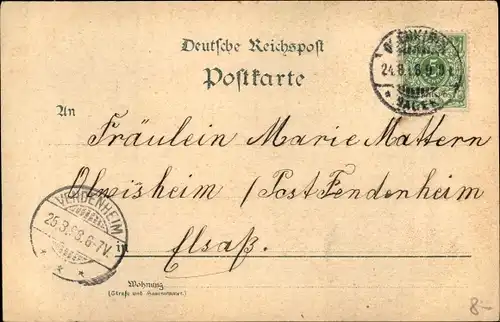 Deutsche Reichspost
Postkarte
An
Fräulein Marie Mattern
Olwisheim / Post Fendenheim
in
Elsaß.
Wohnung
(Straße und Hausnummer)
5
VENDENHEIM
25.8.98.6-7V.
8-